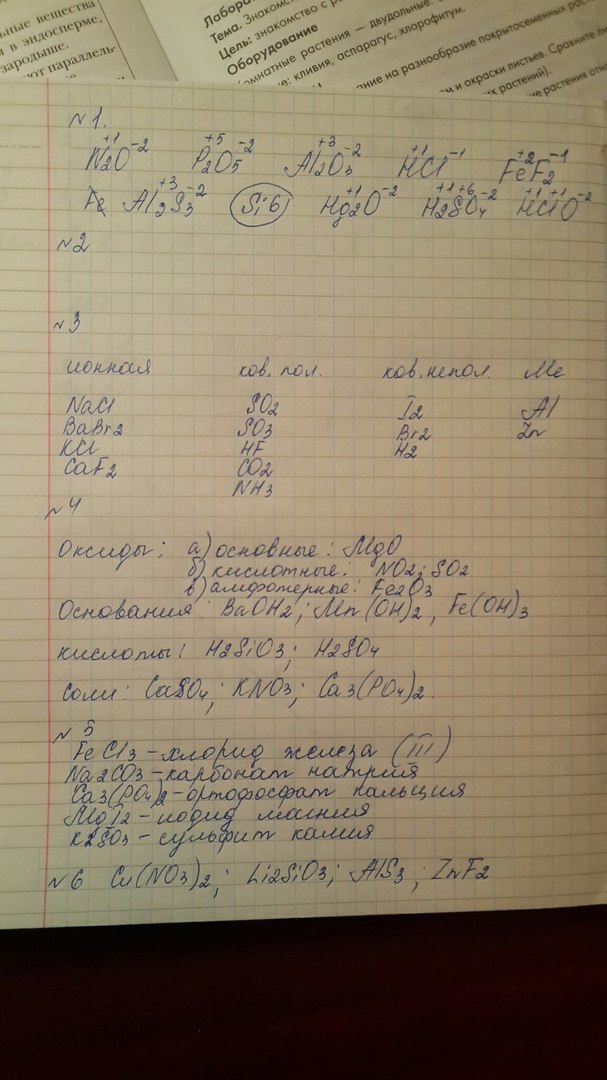 льные вещества
и в эндосперме,
зародыше.
ют параллель-
Тема. Знакомс
Цель: знакомство с р
Оборудование
омнатные растения — двудольные:
е: кливия, аспарагус, хлорофитум.
ание на разнообразие покрытосеменных раст
м и окраски листьев. Сравните ли
их растений).
ие растения отн
№1.
+1 -2 +5 -2 +3 -2 +1 -1 +2 -1
N2O P2O5 Al2O3 HCl FeF2
+3 -2 +1 -2 +1 +6 -2 +1 +1 -2
Fe Al2S3 Si6 Hg2O H2SO4 HClO
№2
№3
ионная ков. пол. ков. непол. Ме
NaCl SO2 I2 Al
BaBr2 SO3 Br2 Zn
KCl HF H2
CaF2 CO2
NH3
№4
Оксиды: а) основные: MgO
б) кислотные: NO2; SO2
в) амфотерные: Fe2O3
Основания: BaOH2; Mn(OH)2; Fe(OH)3
кислоты: H2SiO3; H2SO4
соли: CaSO4; KNO3; Ca3(PO4)2.
№5
FeCl3 - хлорид железа (III)
Na2CO3 - карбонат натрия
Ca3(PO4)2 - ортофосфат кальция
MgI2 - иодид магния
K2SO3 - сульфит калия
№6 Cu(NO3)2; Li2SiO3; AlS3; ZnF2